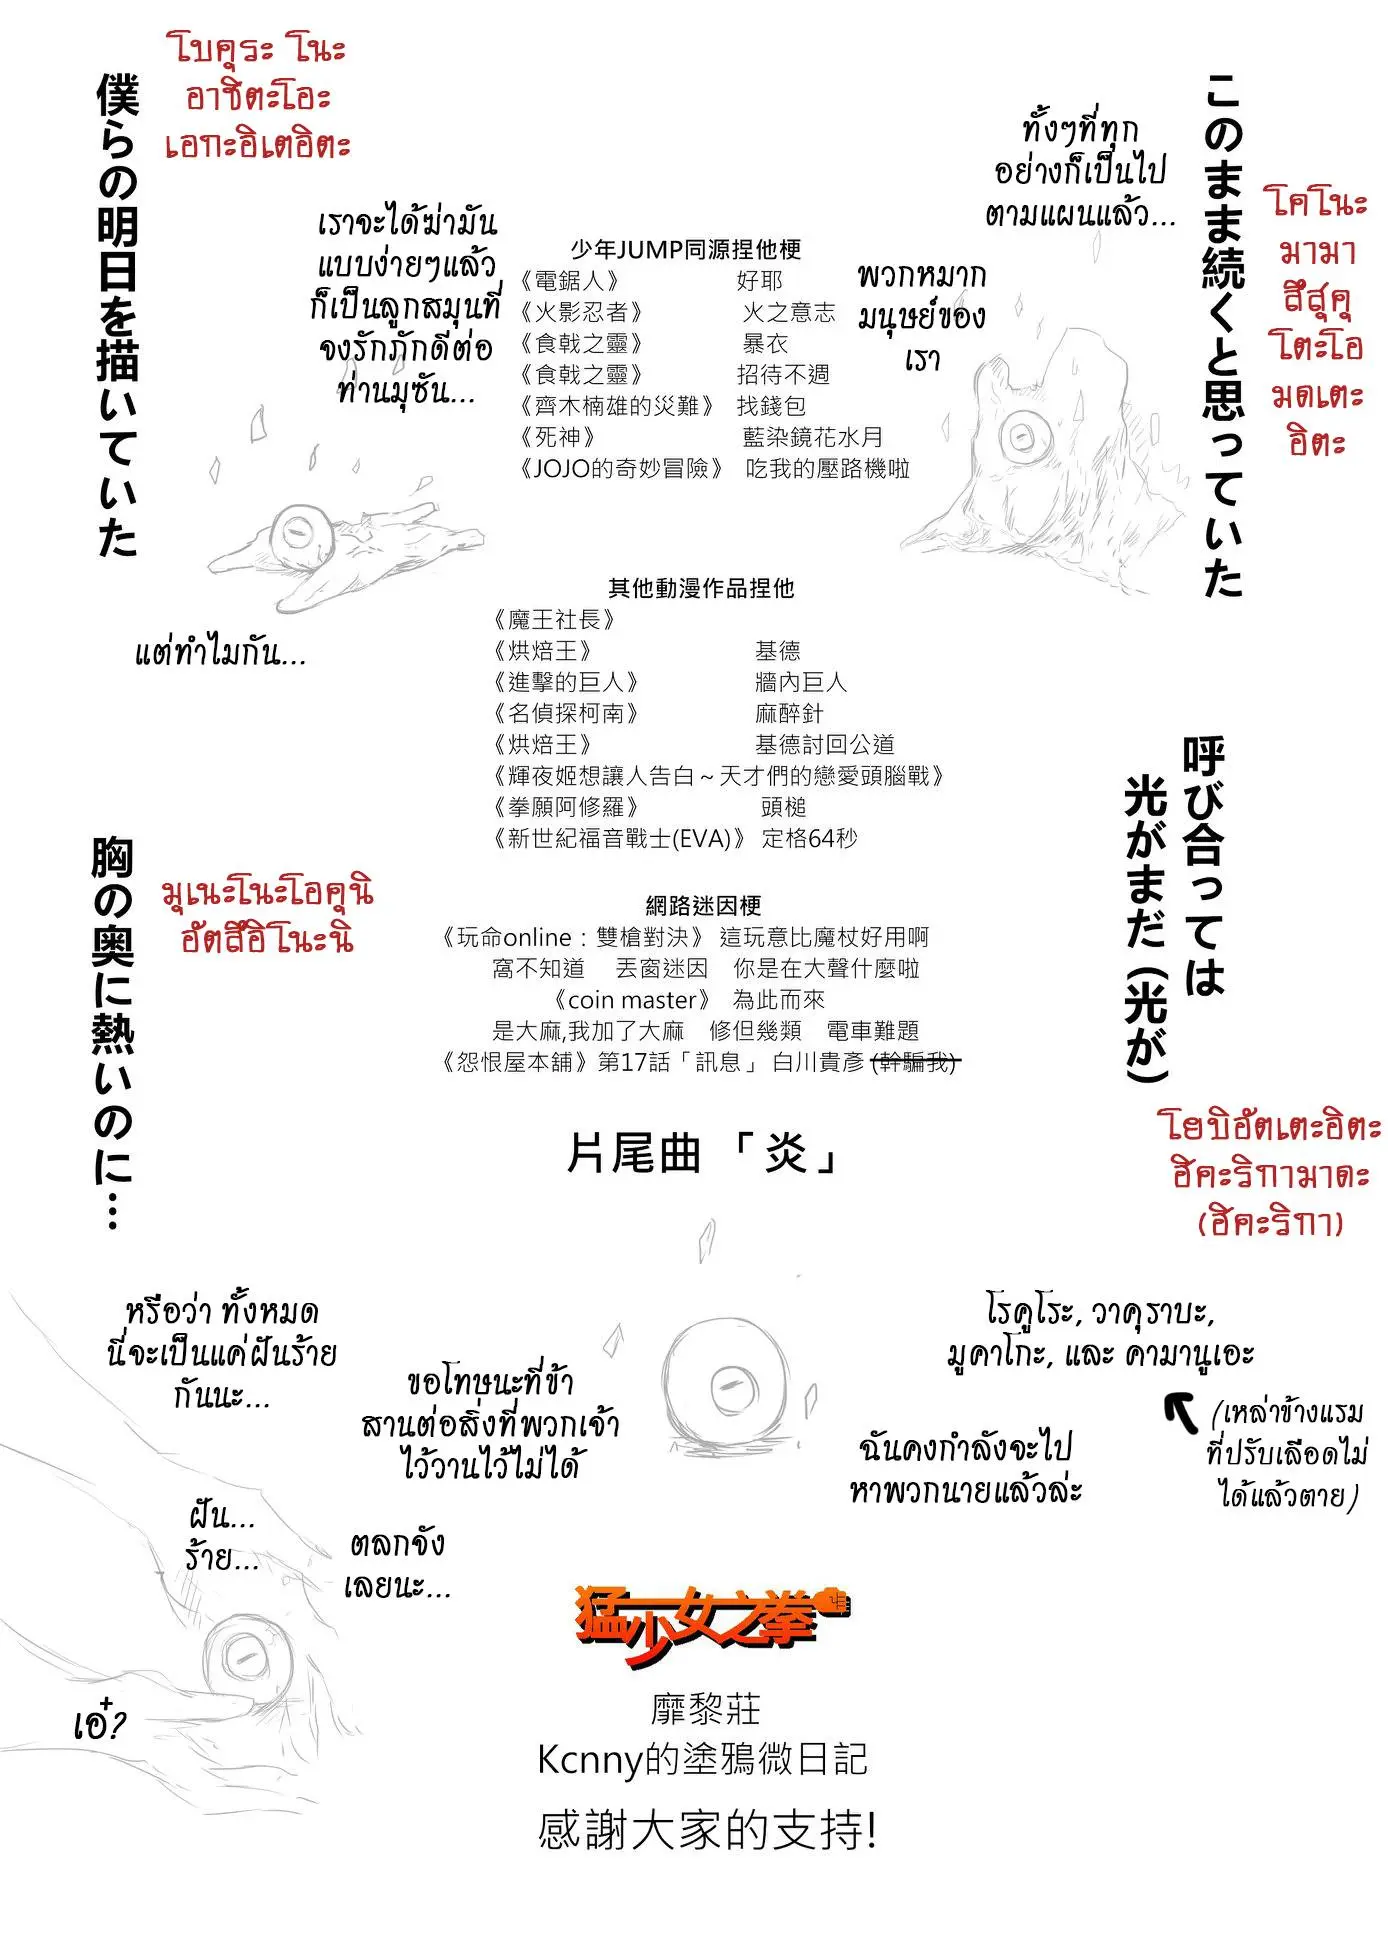 โบคุระ โนะ
อาชิตะโอะ
เอกะอิเตอิตะ
僕らの明日を描いていた
このまま続くと思っていた
โคโนะ
มามา
สึสุคุ
โตะโอ
มตเตะ
อิตะ
ทั้งๆที่ทุก
อย่างก็เป็นไป
ตามแผนแล้ว...
เราจะได้ฆ่ามัน
แบบง่ายๆแล้ว
ก็เป็นลูกสมุนที่
จงรักภักดีต่อ
ท่านมุซัน...
พวกหมาก
มนุษย์ของ
เรา
少年JUMP同源捏他梗
《電鋸人》 好耶
《火影忍者》 火之意志
《食戟之靈》 暴衣
《食戟之靈》 招待不週
《齊木楠雄的災難》 找錢包
《死神》 藍染鏡花水月
《JOJO的奇妙冒險》 吃我的壓路機啦
แต่ทำไมกัน...
其他動漫作品捏他
《魔王社長》
《烘焙王》 基德
《進擊的巨人》 牆內巨人
《名偵探柯南》 麻醉針
《烘焙王》 基德討回公道
《輝夜姬想讓人告白～天才們的戀愛頭腦戰》
《拳願阿修羅》 頭槌
《新世紀福音戰士(EVA)》 定格64秒
呼び合っては
光がまだ(光が)
โยบิอัตเตะอิตะ
ฮิคะริกามาดะ
(ฮิคะริกา)
胸の奥に熱いのに…
มุเนะโนะโอคุนิ
อัตสึอิโนะนิ
網路迷因梗
《玩命online：雙槍對決》 這玩意比魔杖好用啊
窩不知道 丟窗迷因 你是在大聲什麼啦
《coin master》 為此而來
是大麻,我加了大麻 修但幾類 電車難題
《怨恨屋本舖》第17話「訊息」 白川貴彥 (幹騙我)
片尾曲 「炎」
หรือว่า ทั้งหมด
นี่จะเป็นแค่ฝันร้าย
กันนะ...
ขอโทษนะที่ข้า
สานต่อสิ่งที่พวกเจ้า
ไว้วานไว้ไม่ได้
โรคูโระ, วาคุราบะ,
มูคาโกะ, และ คามานูเอะ
(เหล่าข้างแรม
ที่ปรับเลือดไม่
ได้แล้วตาย)
ฉันคงกำลังจะไป
หาพวกนายแล้วล่ะ
ฝัน...
ร้าย...
ตลกจัง
เลยนะ...
เอ๋?
猛少女之拳
靡黎莊
Kcnny的塗鴉微日記
感謝大家的支持!